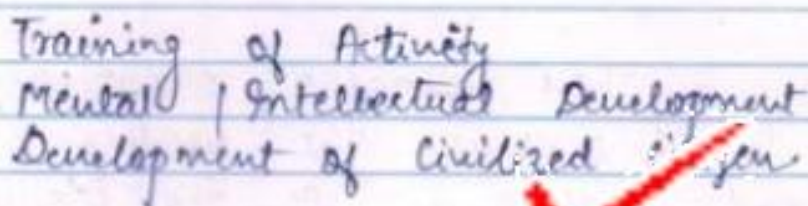 Training of Activity
Mental / Intellectual Development
Development of Civilized